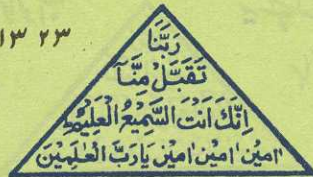 ۱۳۲۳
رَبَّنَا
تَقَبَّلْ مِنَّآ
اِنَّكَ اَنْتَ السَّمِيْعُ الْعَلِيْمُ
اٰمِيْن اٰمِيْن اٰمِيْن يَارَبَّ الْعٰلَمِيْنَ